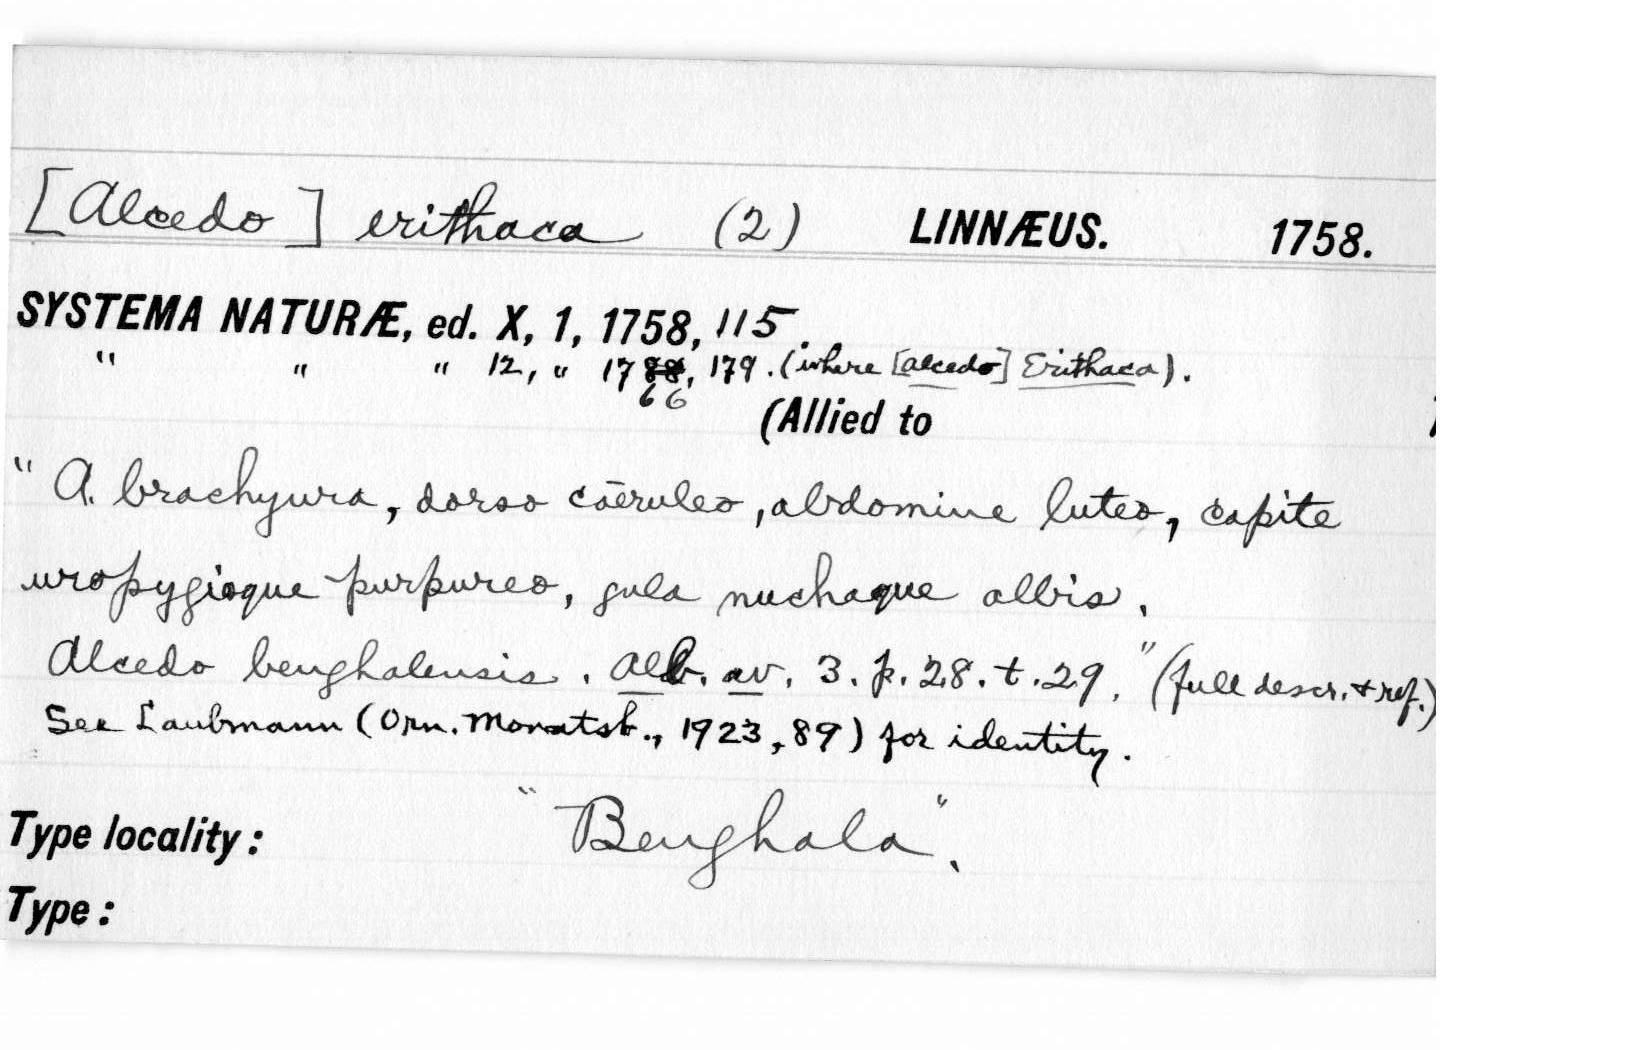 [Alcedo] erithaca (2) LINNÆUS. 1758.
SYSTEMA NATURÆ, ed. X, 1, 1758, 115.
" " " 12, " 1788, 179. (where [alcedo] Erithaca).
66
(Allied to )
"A. brachyura, dorso cæruleo, abdomine luteo, capite
uropygioque purpureo, gula nuchaque albis.
Alcedo benghalensis. Alb. av. 3. p. 28. t. 29." (full descr. & ref.)
See Laubmann (Orn. Monatsb., 1923, 89) for identity.
Type locality: "Benghala".
Type: